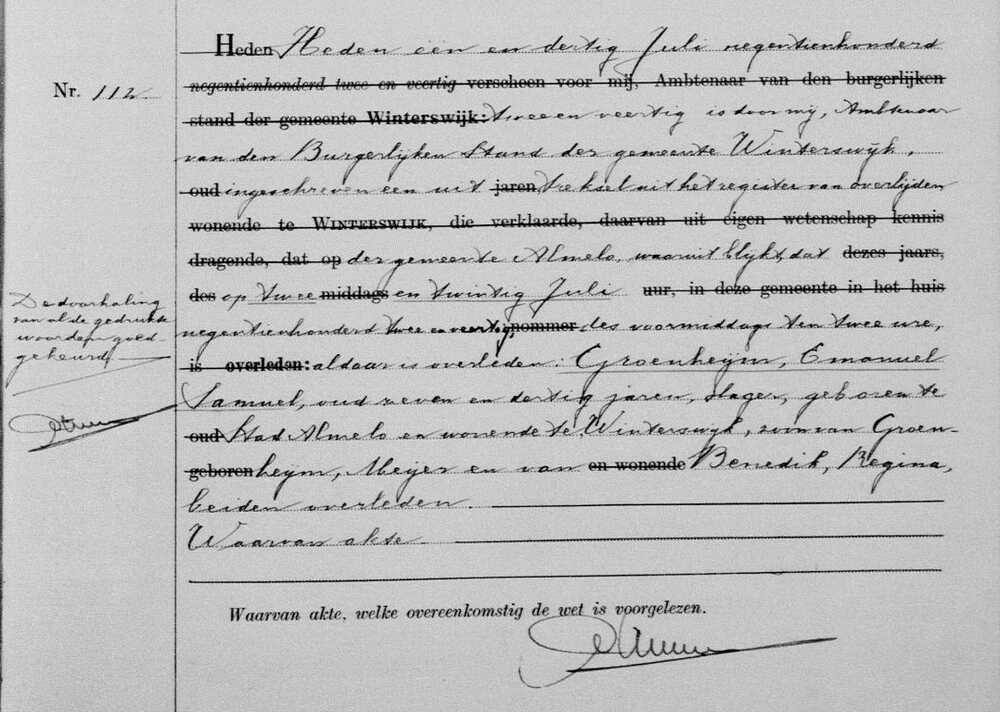 Heden Heden één en dertig Juli negentienhonderd
Nr. 112.
negentienhonderd twee en veertig verscheen voor mij, Ambtenaar van den burgerlijken
stand der gemeente Winterswijk: twee en veertig is door mij, Ambtenaar
van den Burgerlijken Stand der gemeente Winterswijk,
oud ingeschreven een uit jaren, treksel uit het register van overlijden
wonende te WINTERSWIJK, die verklaarde, daarvan uit eigen wetenschap kennis
dragende, dat op der gemeente Almelo, waaruit blijkt, dat dezes jaars,
des op twee middags en twintig Juli uur, in deze gemeente in het huis
negentienhonderd twee en veertig, nommer des voormiddags ten twee ure,
is overleden: aldaar is overleden: Groenheijm, Emanuel
Samuel, oud zeven en dertig jaren, slager, geboren te
oud Stad Almelo en wonende te Winterswijk, zoon van Groen-
geboren heijm, Meijer en van en wonende Benedik, Regina,
beiden overleden.
Waarvan akte
De doorhaling
van al de gedrukte
woorden goed-
gekeurd.
Waarvan akte, welke overeenkomstig de wet is voorgelezen.